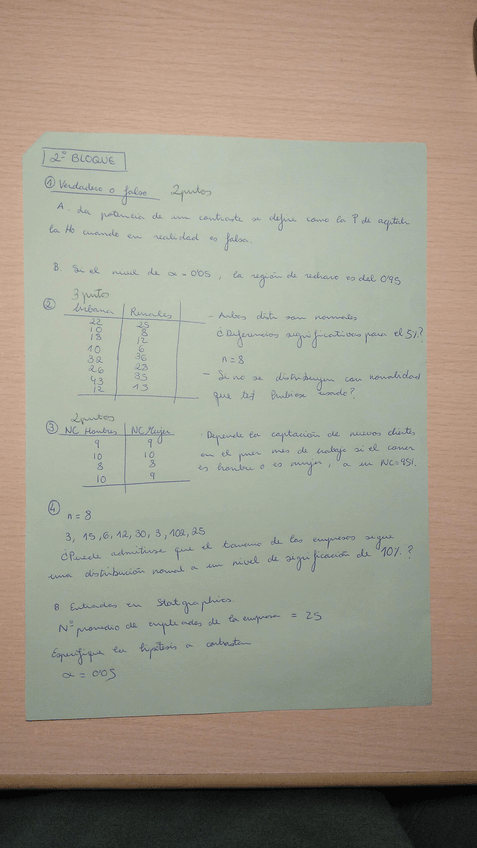 2º BLOQUE
① Verdadero o falso 2 puntos
A. La potencia de un contraste se define como la P de aceptar
la Ho cuando en realidad es falsa.
B. Si el nivel de α = 0'05, la región de rechazo es del 0'95
3 puntos
② Urbanas Rurales
22 25
10 8
13
10 6
32 36
26 23
43 35
12 13
- Ambas dist son normales
¿Diferencias significativas para el 5%?
n = 8
- Si no se distribuyen con normalidad
que test hubiese usado?
2 puntos
③ NC Hombres NC Mujer
9 9
10 10
8 8
10 9
Depende la captación de nuevos clientes
en el primer mes de trabajo si el
es hombre o es mujer, a un NC=95%.
④
n = 8
3, 15, 6, 12, 30, 3, 102, 25
¿Puede admitirse que el tamaño de las empresas sigue
una distribución normal a un nivel de significación de 10%?
B Entradas en Statgraphics
Nº promedio de empleados de la empresa = 25
Especifique la hipótesis a contrastar
α = 0'05